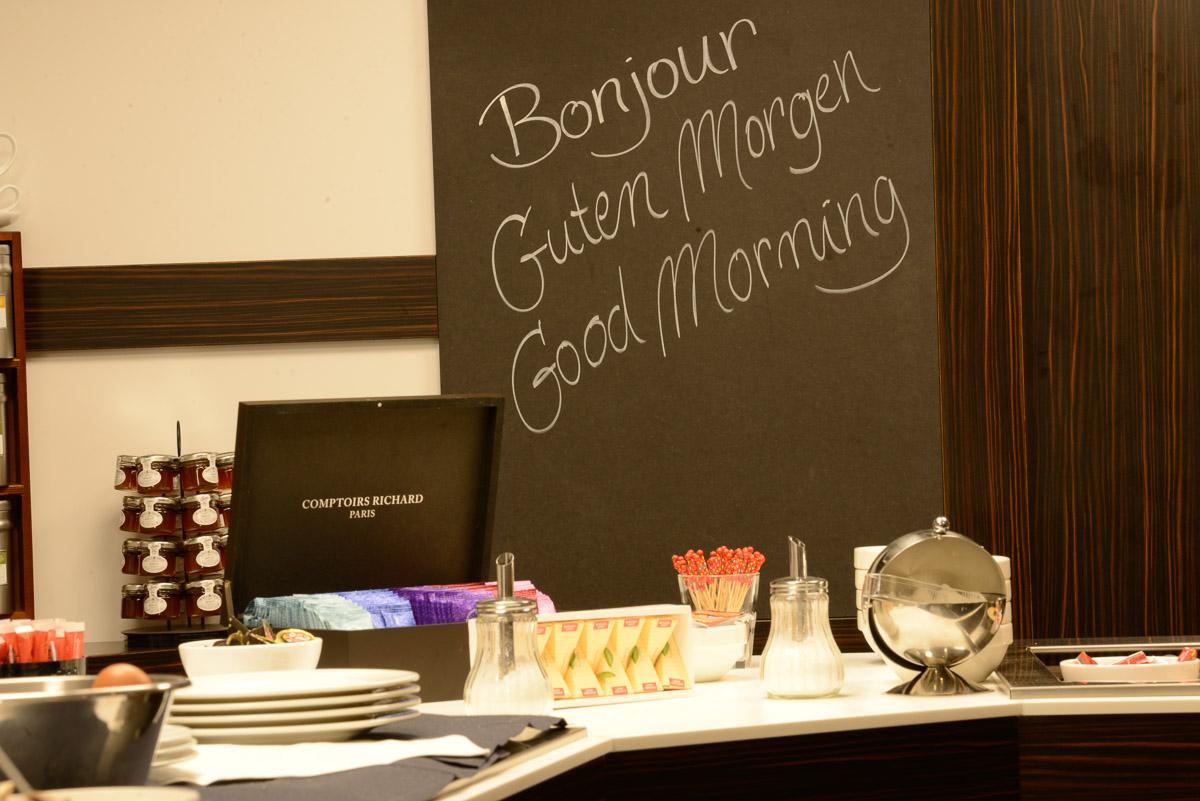 Bonjour
Guten Morgen
Good Morning
COMPTOIRS RICHARD
PARIS